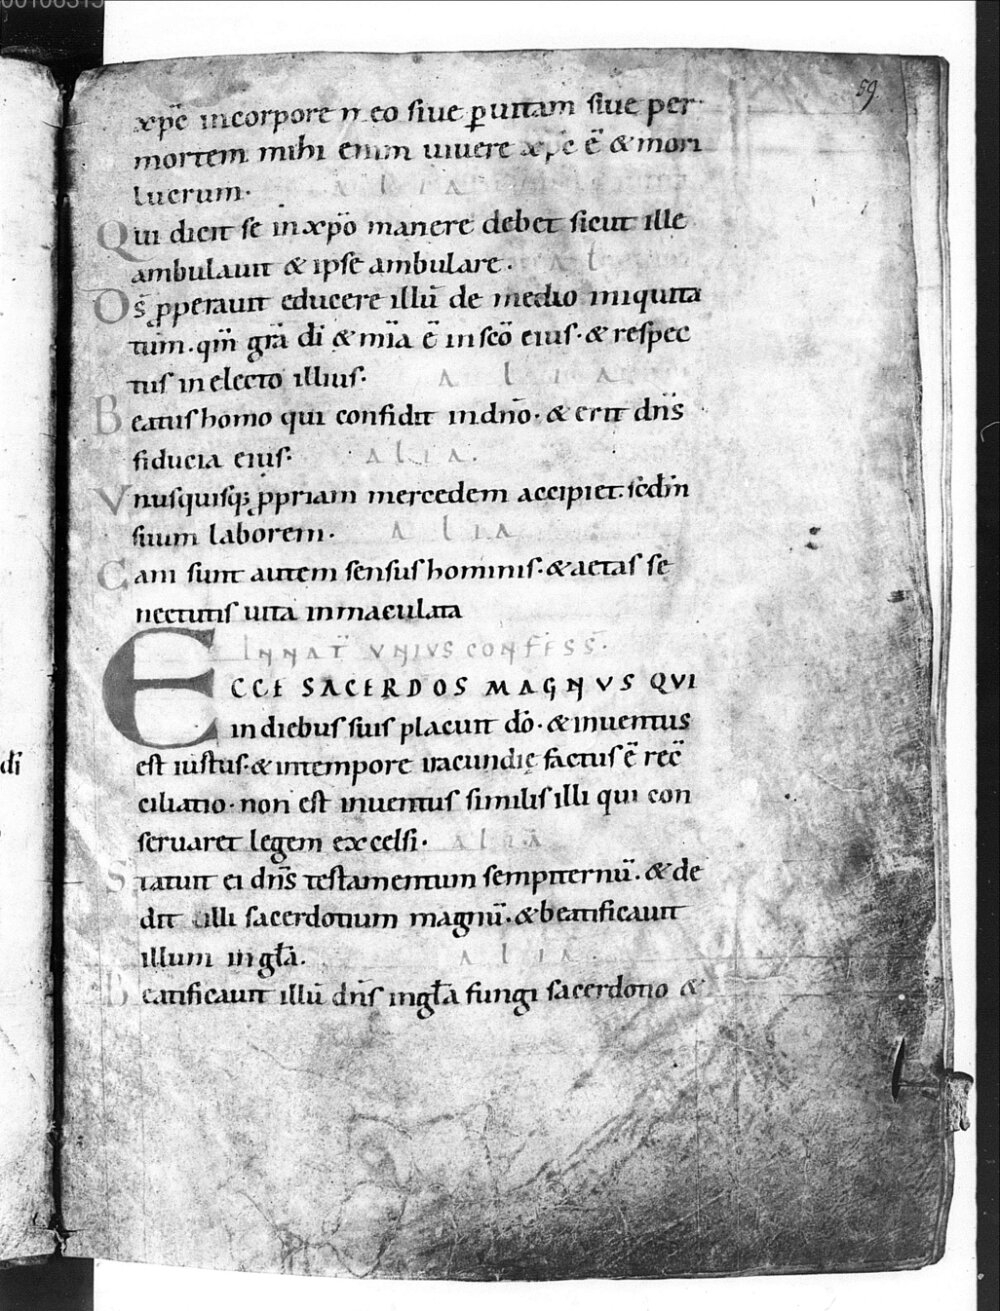 59
xp̄c incorpore meo siue ꝑ uitam siue per
mortem mihi enim uiuere xp̄c ē & mori
lucrum· ALIA
Qui dicit se in xp̄o manere debet sicut ille
ambulauit & ipse ambulare· AL
Os̄ ꝓperauit educere illū de medio iniquita
tūm. qm̄ grā dī & mīa ē in scō eius· & respec
tus in electo illius· ALIA
Beatus homo qui confidit in dn̄o· & erit dn̄s
fiducia eius· ALIA.
Vnusquisq; ꝓpriam mercedem accipiet. scdm̄
suum laborem· ALIA
Cani sunt autem sensus hominis· & aetas se
nectutis uita inmaculata
IN NAT̄ VNIVS CONFESS̄·
ECCE SACERDOS MAGNVS QVI
in diebus suis placuit dō· & inuentus
est iustus· & in tempore iracundię factus ē rec̄
ciliatio· non est inuentus similis illi qui con
seruaret legem excelsi· ALIA
Statuit ei dn̄s testamentum sempiternū· & de
dit illi sacerdotium magnū· & beatificauit
illum in gl̄a. ALIA.
Beatificauit illū dn̄s in gl̄a fungi sacerdotio &
dī